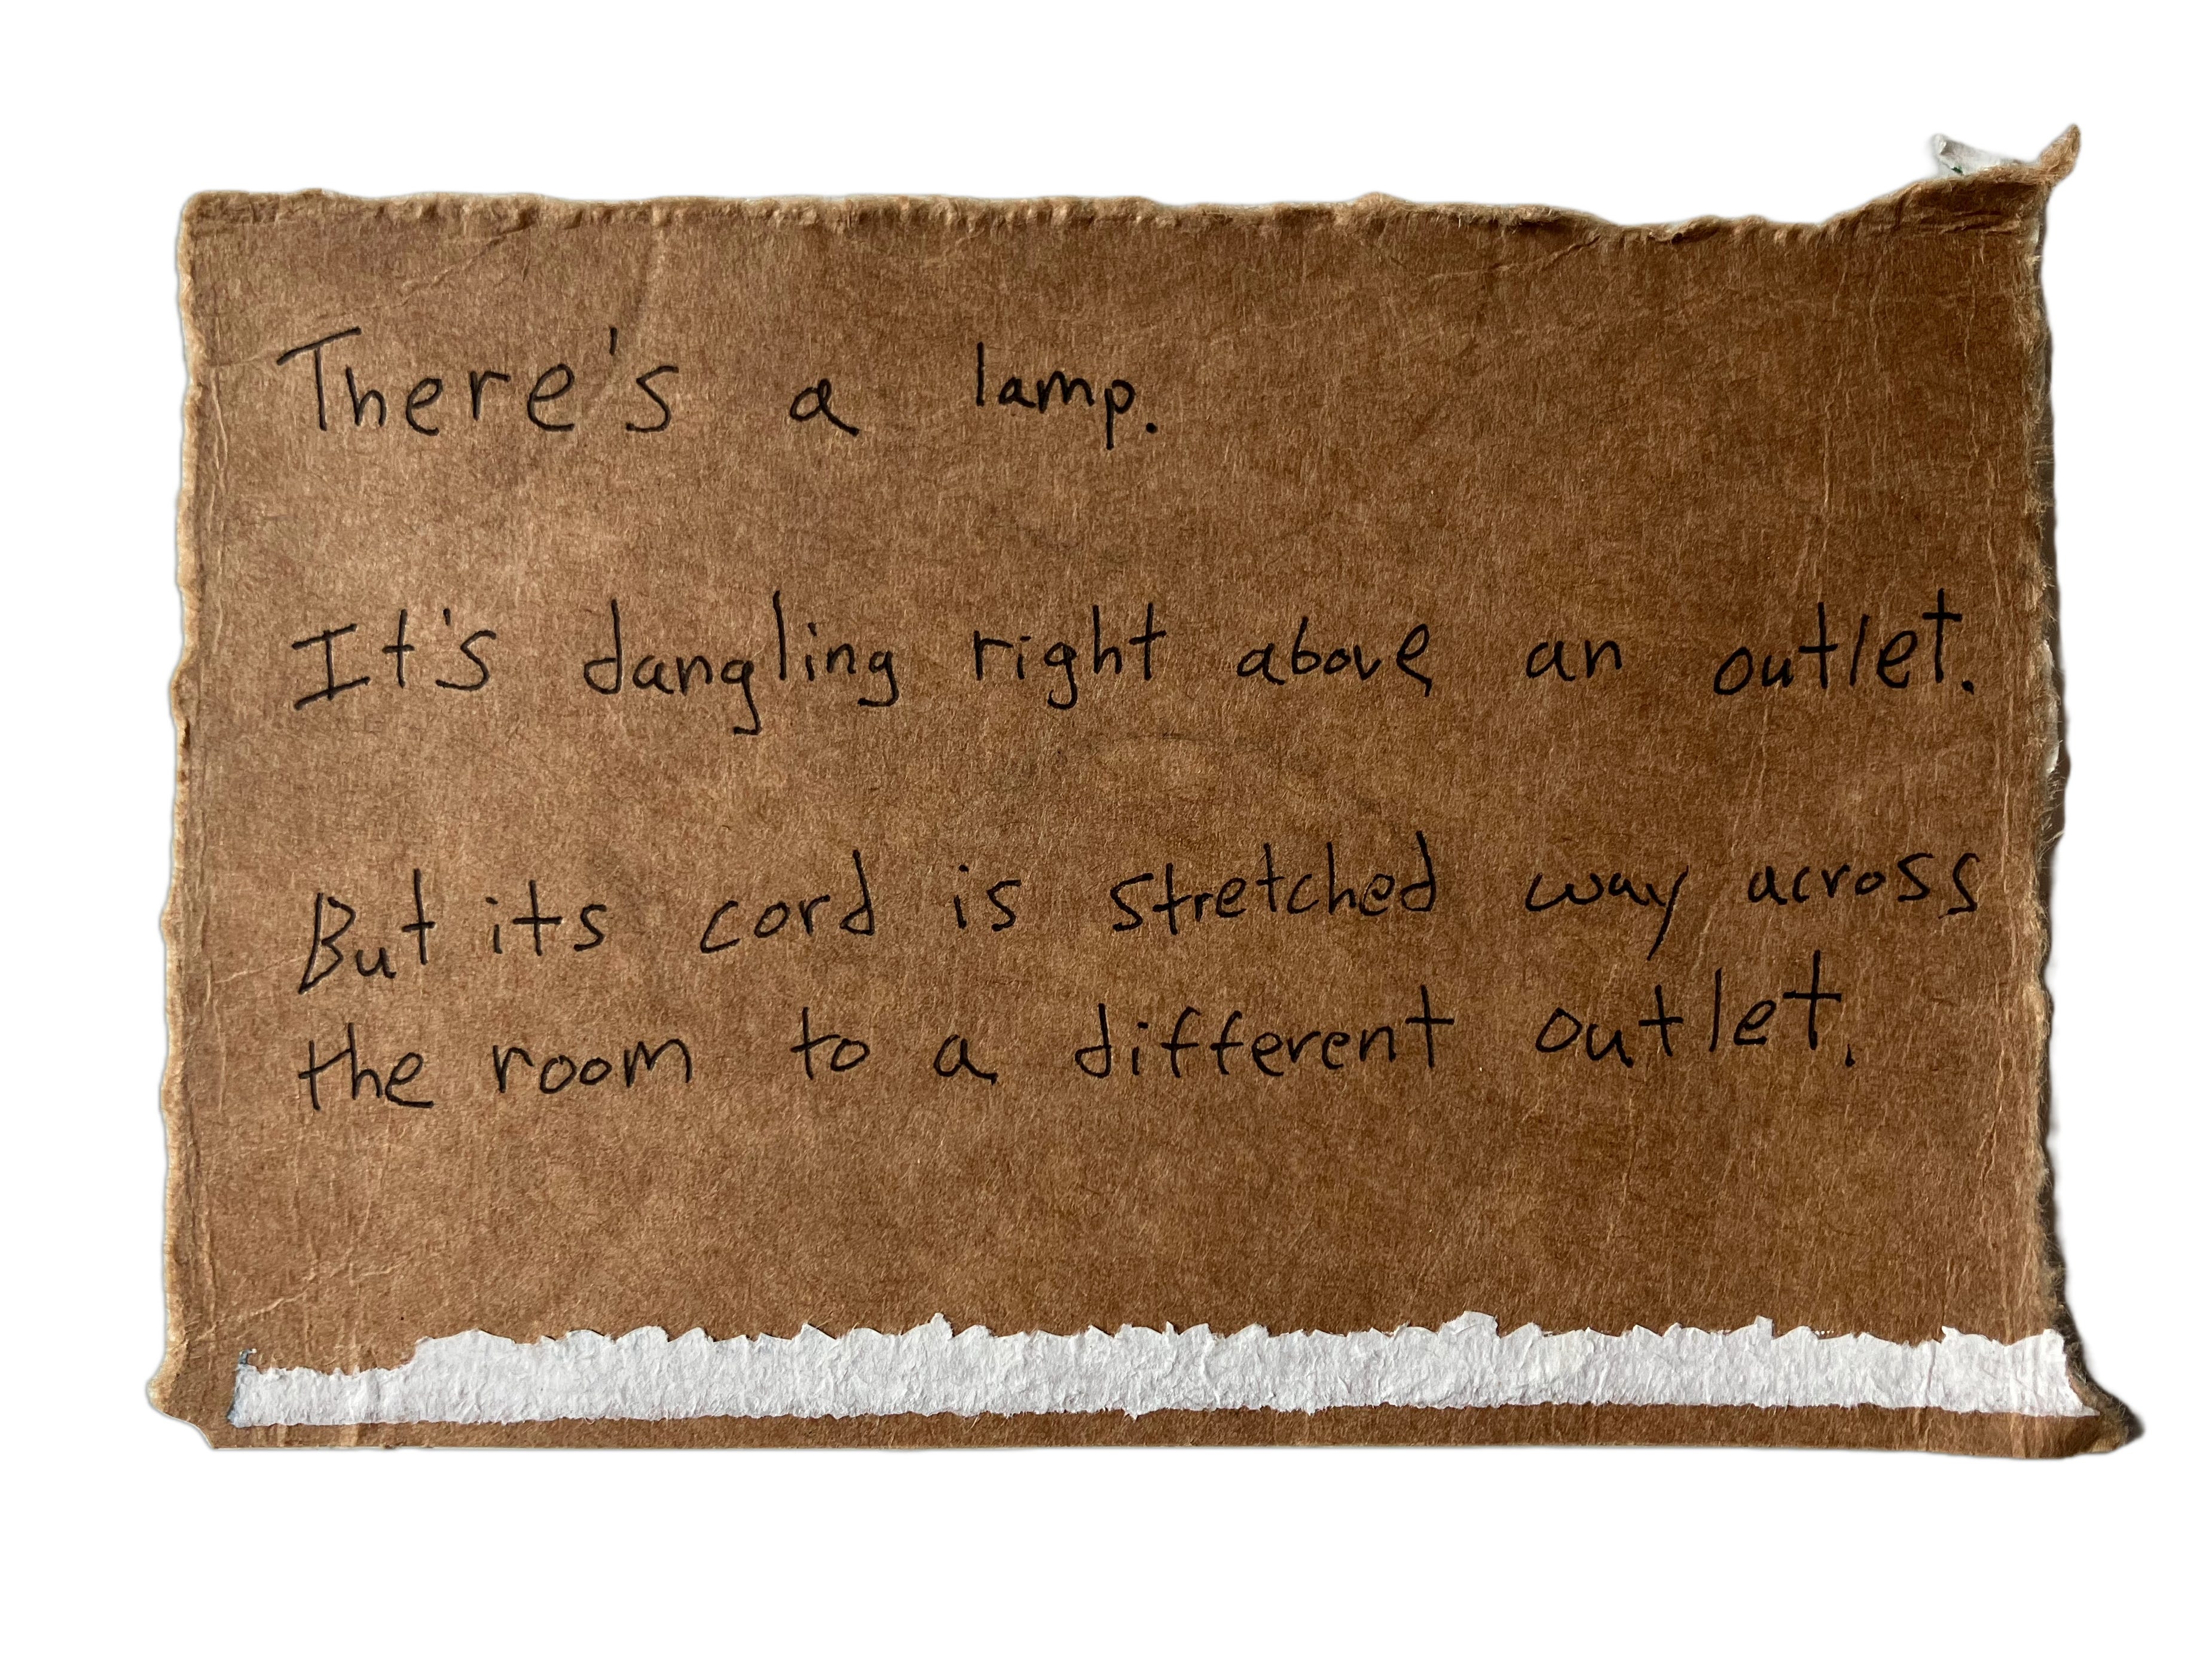 There's a lamp.
It's dangling right above an outlet.
But its cord is stretched way across
the room to a different outlet.